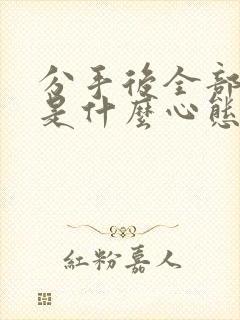 分手後全部
是什麼心態
紅粉嘉人